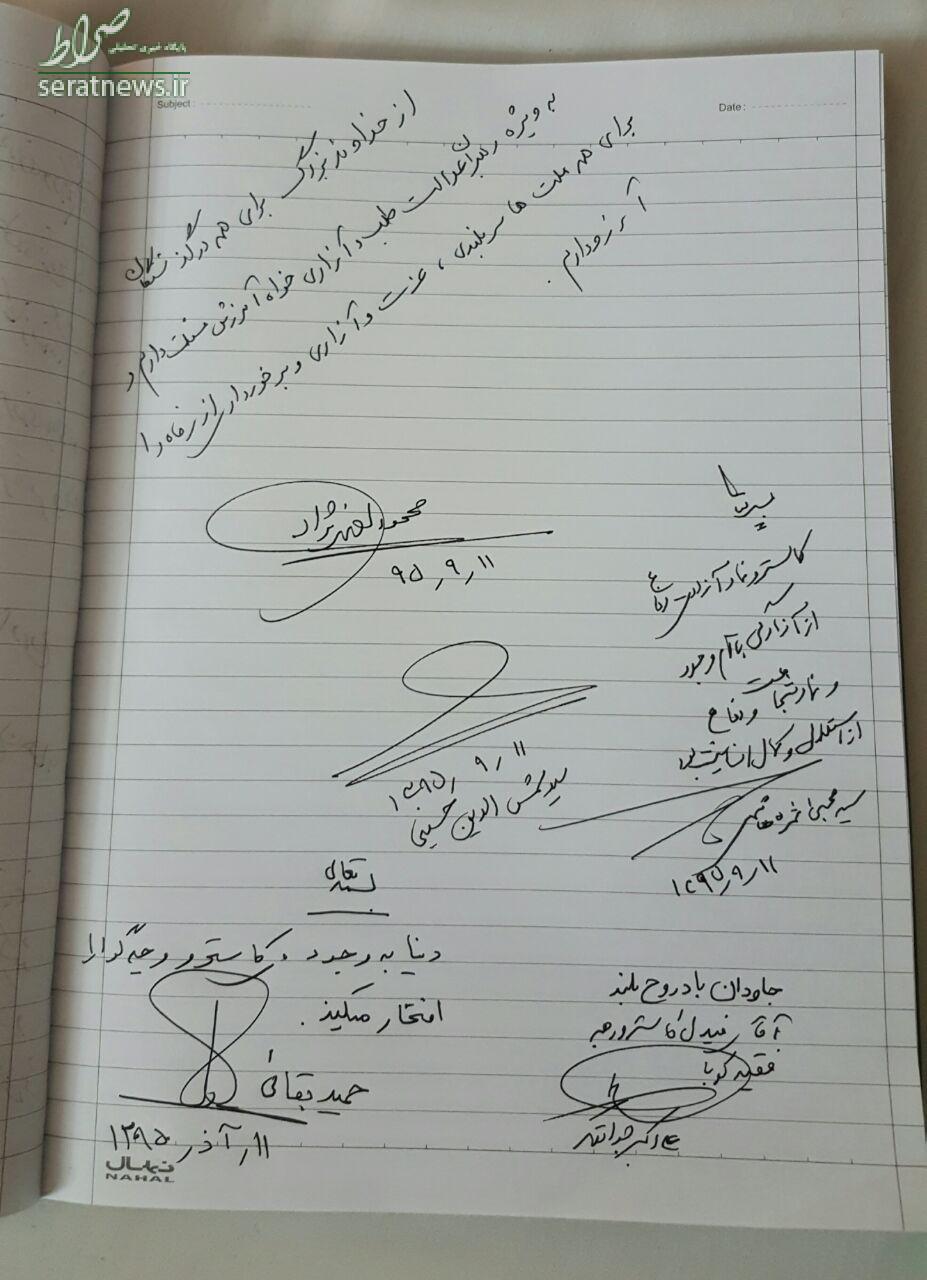 صراط
پایگاه خبری تحلیلی
seratnews.ir
Subject :
Date :
از خداوند بزرگ برای همه درگذشتگان
به ویژه رهبران عدالت طلب و آزادی خواه آمرزش مسئلت دارم و
برای همه ملت ها سربلندی، عزت و آزادی و برخورداری از رفاه را
آرزو دارم.
محمود احمدی نژاد
۹۵/۹/۱۱
کاسترو نماد آزادی دفاع
از آزادی با تمام وجود
و نماد شجاعت و دفاع
از استقلال و کمال انسانیت
سید مجتبی ثمره هاشمی
۱۳۹۵/۹/۱۱
۱۳۹۵/۹/۱۱
سید شمس الدین حسینی
بسمه تعالی
دنیا به وجود کاسترو و چه گوارا
افتخار میکند.
حمید بقائی
۱۱/ آذر ۱۳۹۵
جاودان باد روح بلند
آقای فیدل کاسترو رهبر
فقید کوبا
علی اکبر جوانفکر
نهال
NAHAL